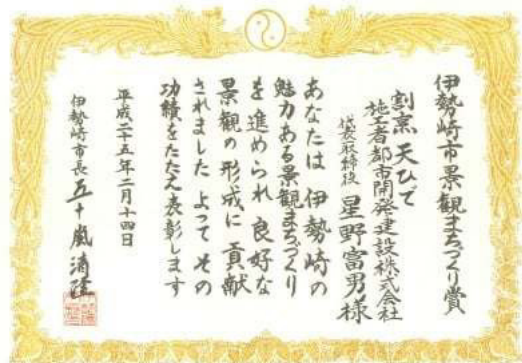 伊勢崎市景観まちづくり賞
割烹 天ひで
施工者都市開発建設株式会社
代表取締役 星野富男様
あなたは 伊勢崎の
魅力ある景観まちづくり
を進められ 良好な
景観の形成に 貢献
されました よって その
功績をたたえ表彰します
平成二十五年二月十四日
伊勢崎市長 五十嵐清隆